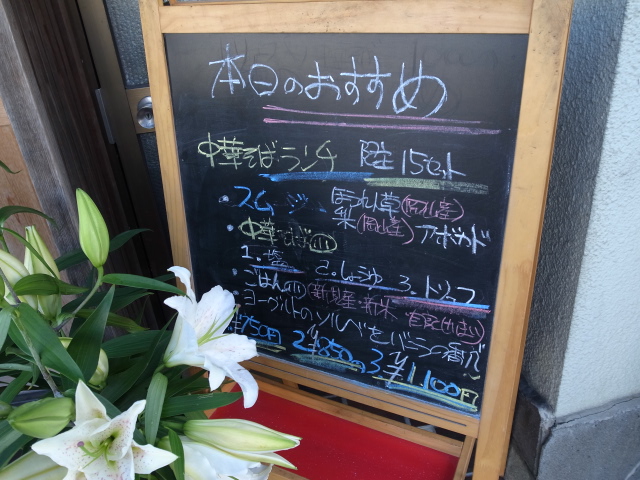 本日のおすすめ
中華そばランチ 限定15セット
・スムージー ほうれん草(岡山産)
梨(岡山産) アボカド
・中華そば
1.塩 2.しょうゆ 3.トリュフ
・ごはん(新潟産・新米
・ヨーグルトのソルベ バニラの香り
1¥750円 2¥850円 3¥1,100円